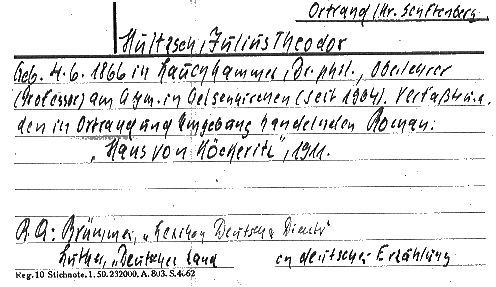 Ortrand (Kr. Senftenberg)
Hultzsch, Julius Theodor
Geb. 4.6.1866 in Lauchhammer, Dr. phil., Oberlehrer
(Professor) am Gym. in Gelsenkirchen (seit 1904). Verfaßt u.a.
den in Ortrand und Umgebung handelnden Roman:
„Hans von Köckeritz", 1911.
Brümmer, „Lexikon Deutscher
Luther, „Deutsches Land in deutscher Erzählung
Reg. 10 Stichnote. 1. 50. 232000. A. 803. S. 4. 62